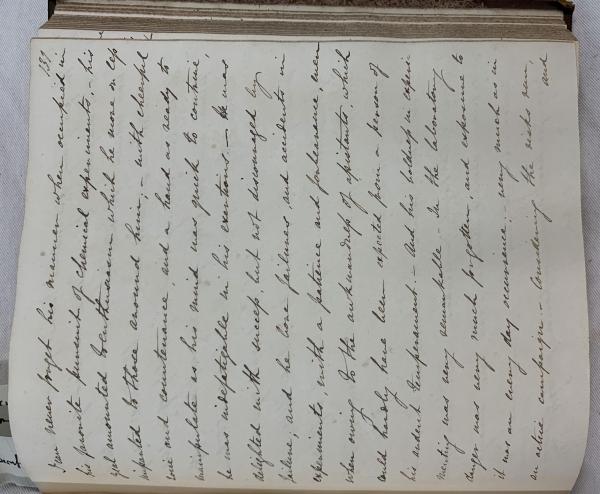 139
I can never forget his manner when occupied in
his favorite pursuit of chemical experiments, - his
zeal amounted to enthusiasm which he more or less
imparted to those around him, - with cheerful
voice and countenance, and a hand as ready to
manipulate as his mind was quick to contrive,
he was indefatigable in his exertions. - He was
delighted with success but not discouraged by
failure, and he bore failures and accidents in
experiments, with a patience and forbearance, even
when owing to the awkwardness of assistants, which
could hardly have been expected from a person of
his ardent temperament. - And his boldness in exper
menting was very remarkable. - In the laboratory
danger was very much forgotten, and exposure to
it was an every day occurrence, very much as in
an active campaign. - Considering the risks run,
and